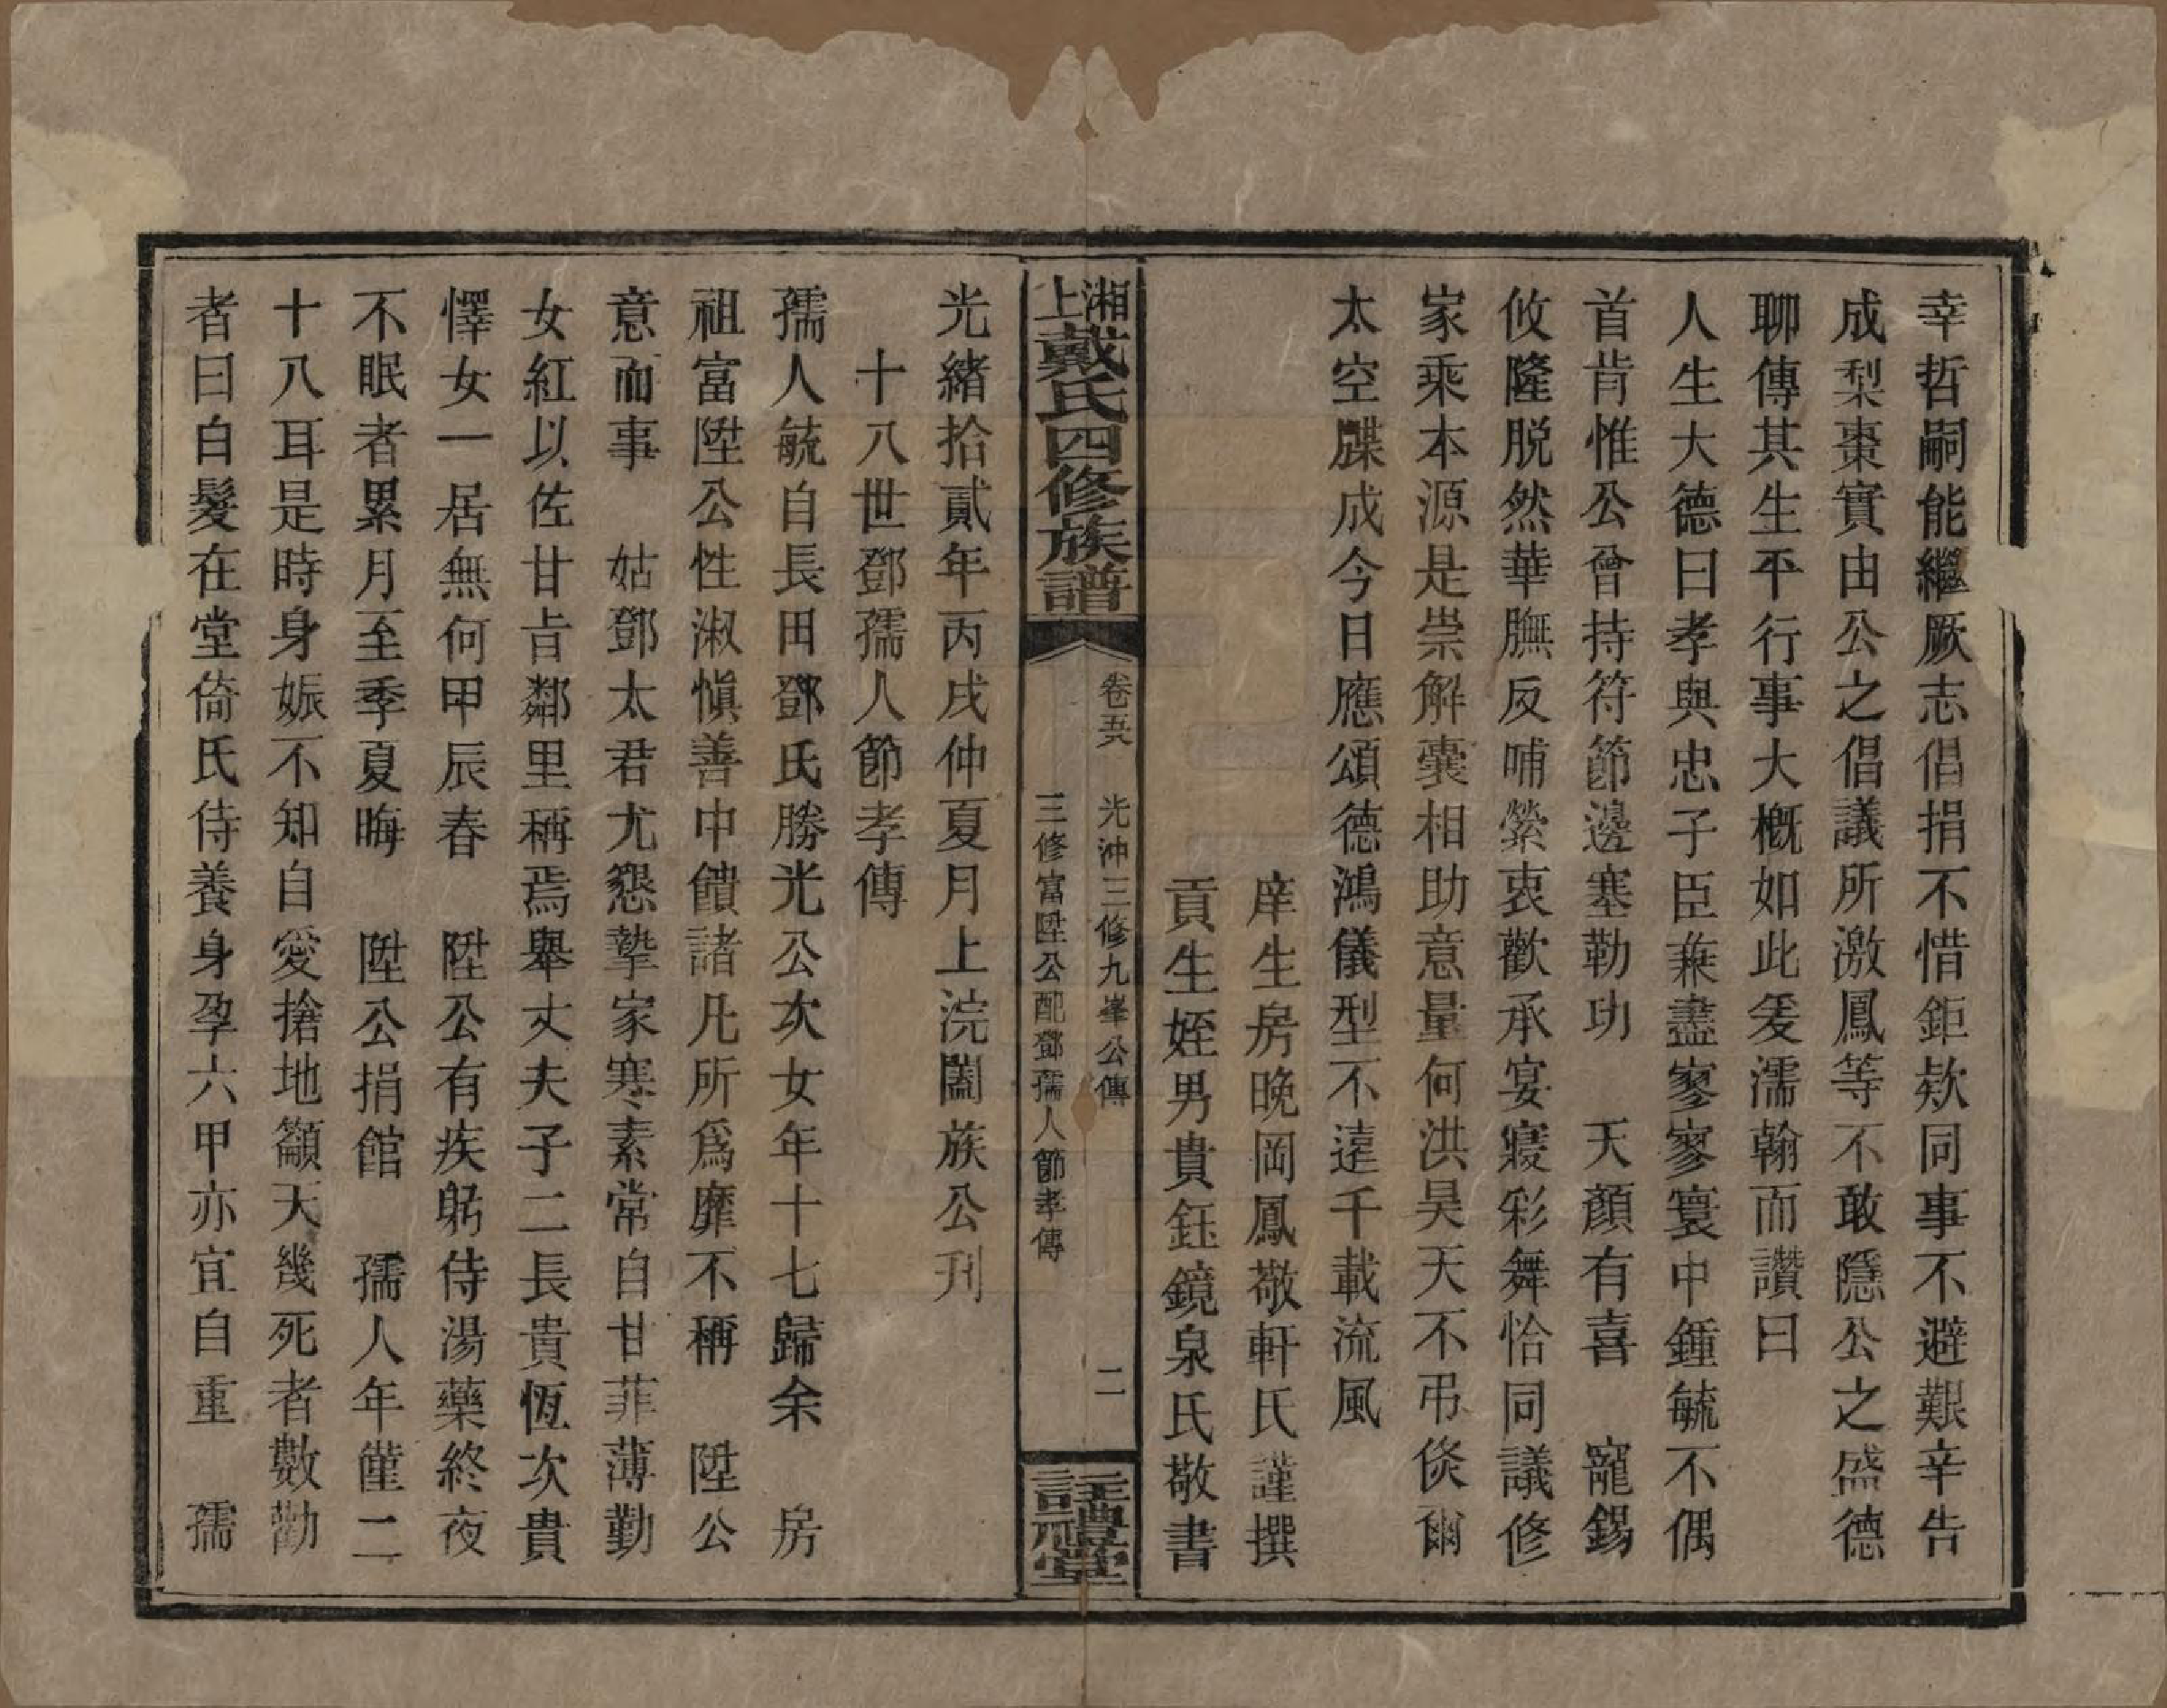 幸哲嗣能繼厥志倡捐不惜鉅欵同事不避艱辛告
成梨棗實由公之倡議所激鳳等不敢隱公之盛德
聊傳其生平行事大概如此爰濡翰而讚曰
人生大德曰孝與忠子臣蒹盡寥寥寰中鍾毓不偶
首肯惟公曾持符節邊塞勒功　天顏有喜　寵錫
攸隆脱然華膴反哺縈衷歡承宴寢彩舞恰同議修
家乘本源是崇解囊相助意量何洪昊天不弔倐爾
太空牒成今日應頌德鴻儀型不遠千載流風
庠生房晚岡鳳敬軒氏謹撰
貢生姪男貴鈺鏡泉氏敬書
湘上戴氏四修族譜
卷五　光沖三修九峯公傳　二
三修富陞公配鄧孺人節孝傳
註禮堂
光緒拾貳年丙戌仲夏月上浣闔族公刊
十八世鄧孺人節孝傳
孺人毓自長田鄧氏勝光公次女年十七歸余　房
祖富陞公性淑愼善中饋諸凡所爲靡不稱　陞公
意而事　姑鄧太君尤懇摯家寒素常自甘菲薄勤
女紅以佐甘旨鄰里稱焉舉丈夫子二長貴恆次貴
懌女一居無何甲辰春　陞公有疾躬侍湯藥終夜
不眠者累月至季夏晦　陞公捐館　孺人年僅二
十八耳是時身娠不知自愛搶地籲天幾死者數勸
者曰白髮在堂倚氏侍養身孕六甲亦宜自重　孺